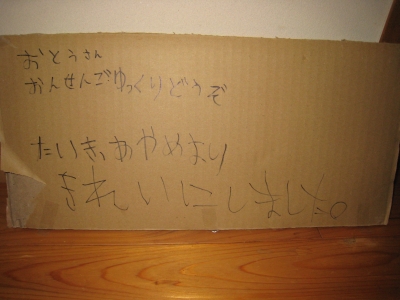 おとうさん
おんせんごゆっくりどうぞ
たいき、あやめより
きれいにしました。